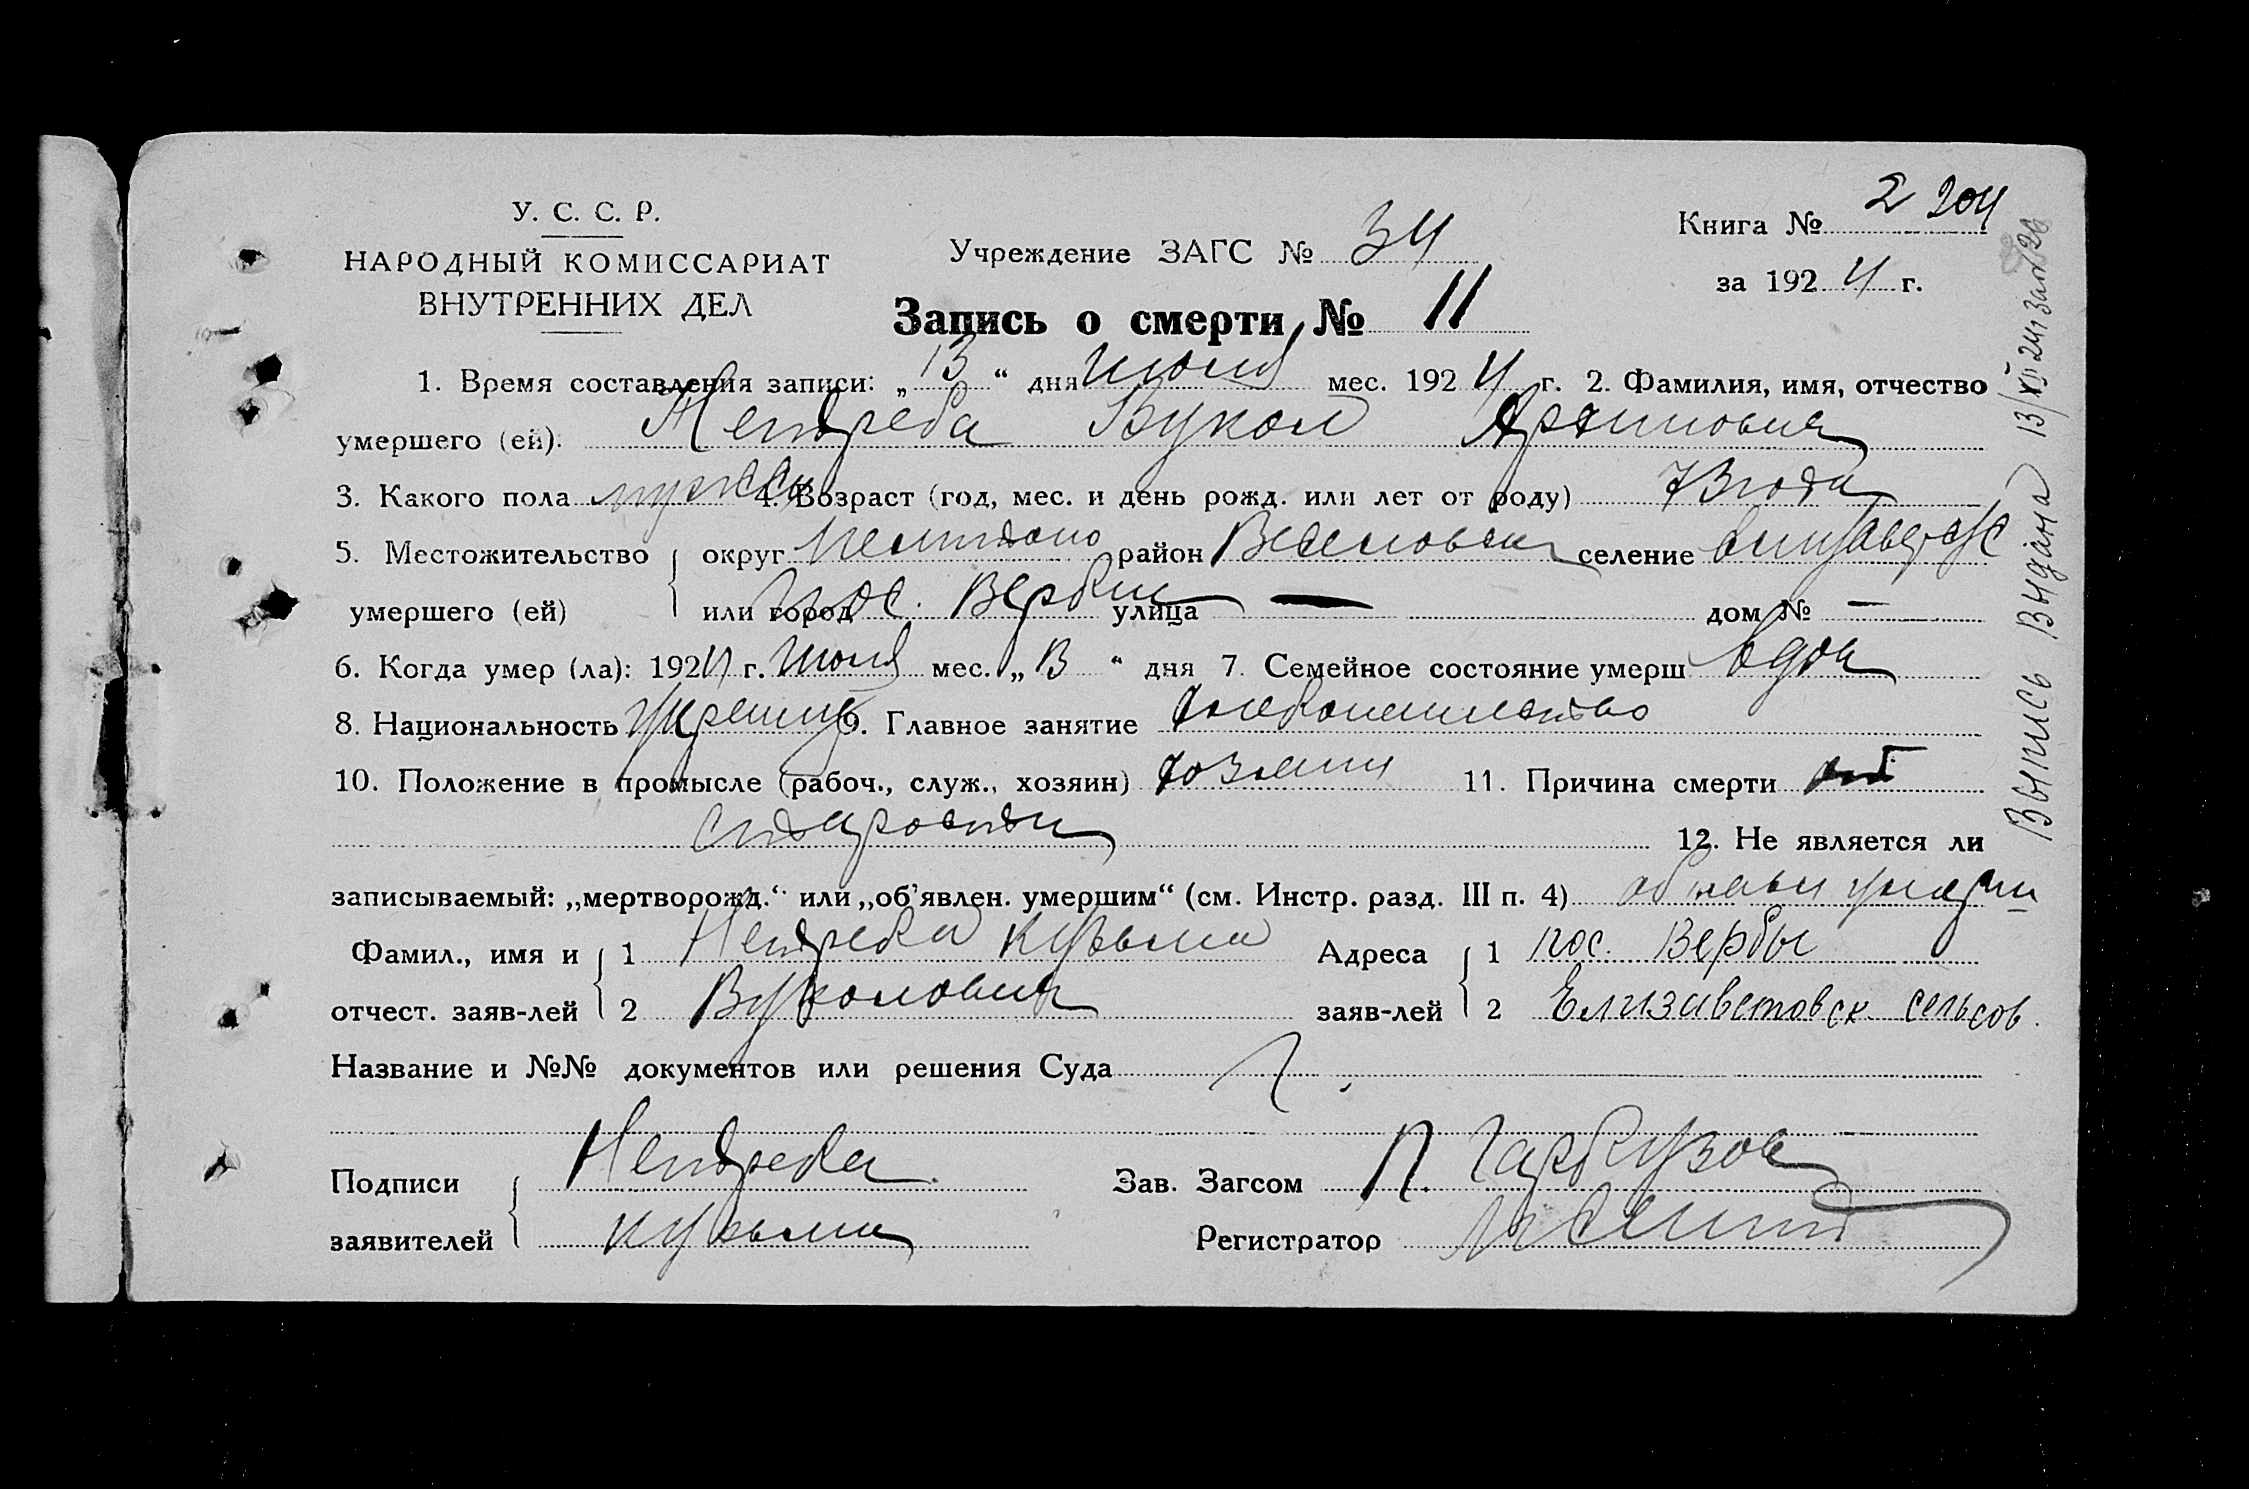 У. С. С. Р.
НАРОДНЫЙ КОМИССАРИАТ
ВНУТРЕННИХ ДЕЛ
Учреждение ЗАГС № 34
Книга № 2 204
за 1924 г.
Запись о смерти № 11
1. Время составления записи: „13“ дня июля мес. 1924 г. 2. Фамилия, имя, отчество
умершего (ей): Нетреба Вукол
3. Какого пола мужск 4. Возраст (год, мес. и день рожд. или лет от роду) 73 года
5. Местожительство округ район селение
умершего (ей) или город пос. Вербы улица — дом № —
6. Когда умер (ла): 1924 г. июля мес. „13“ дня 7. Семейное состояние умерш вдов
8. Национальность украинец 9. Главное занятие хлебопашество
10. Положение в промысле (рабоч., служ., хозяин) хозяин 11. Причина смерти от
старости 12. Не является ли
записываемый: „мертворожд.“ или „об'явлен. умершим“ (см. Инстр. разд. III п. 4)
Фамил., имя и 1 Нетреба Кузьма Адреса 1 пос. Вербы
отчест. заяв-лей 2 Вуколович заяв-лей 2 Елизаветовск сельсов.
Название и №№ документов или решения Суда
Подписи Нетреба Зав. Загсом П. Гарбузов
заявителей Кузьма Регистратор
Выпись выдана 13/XII